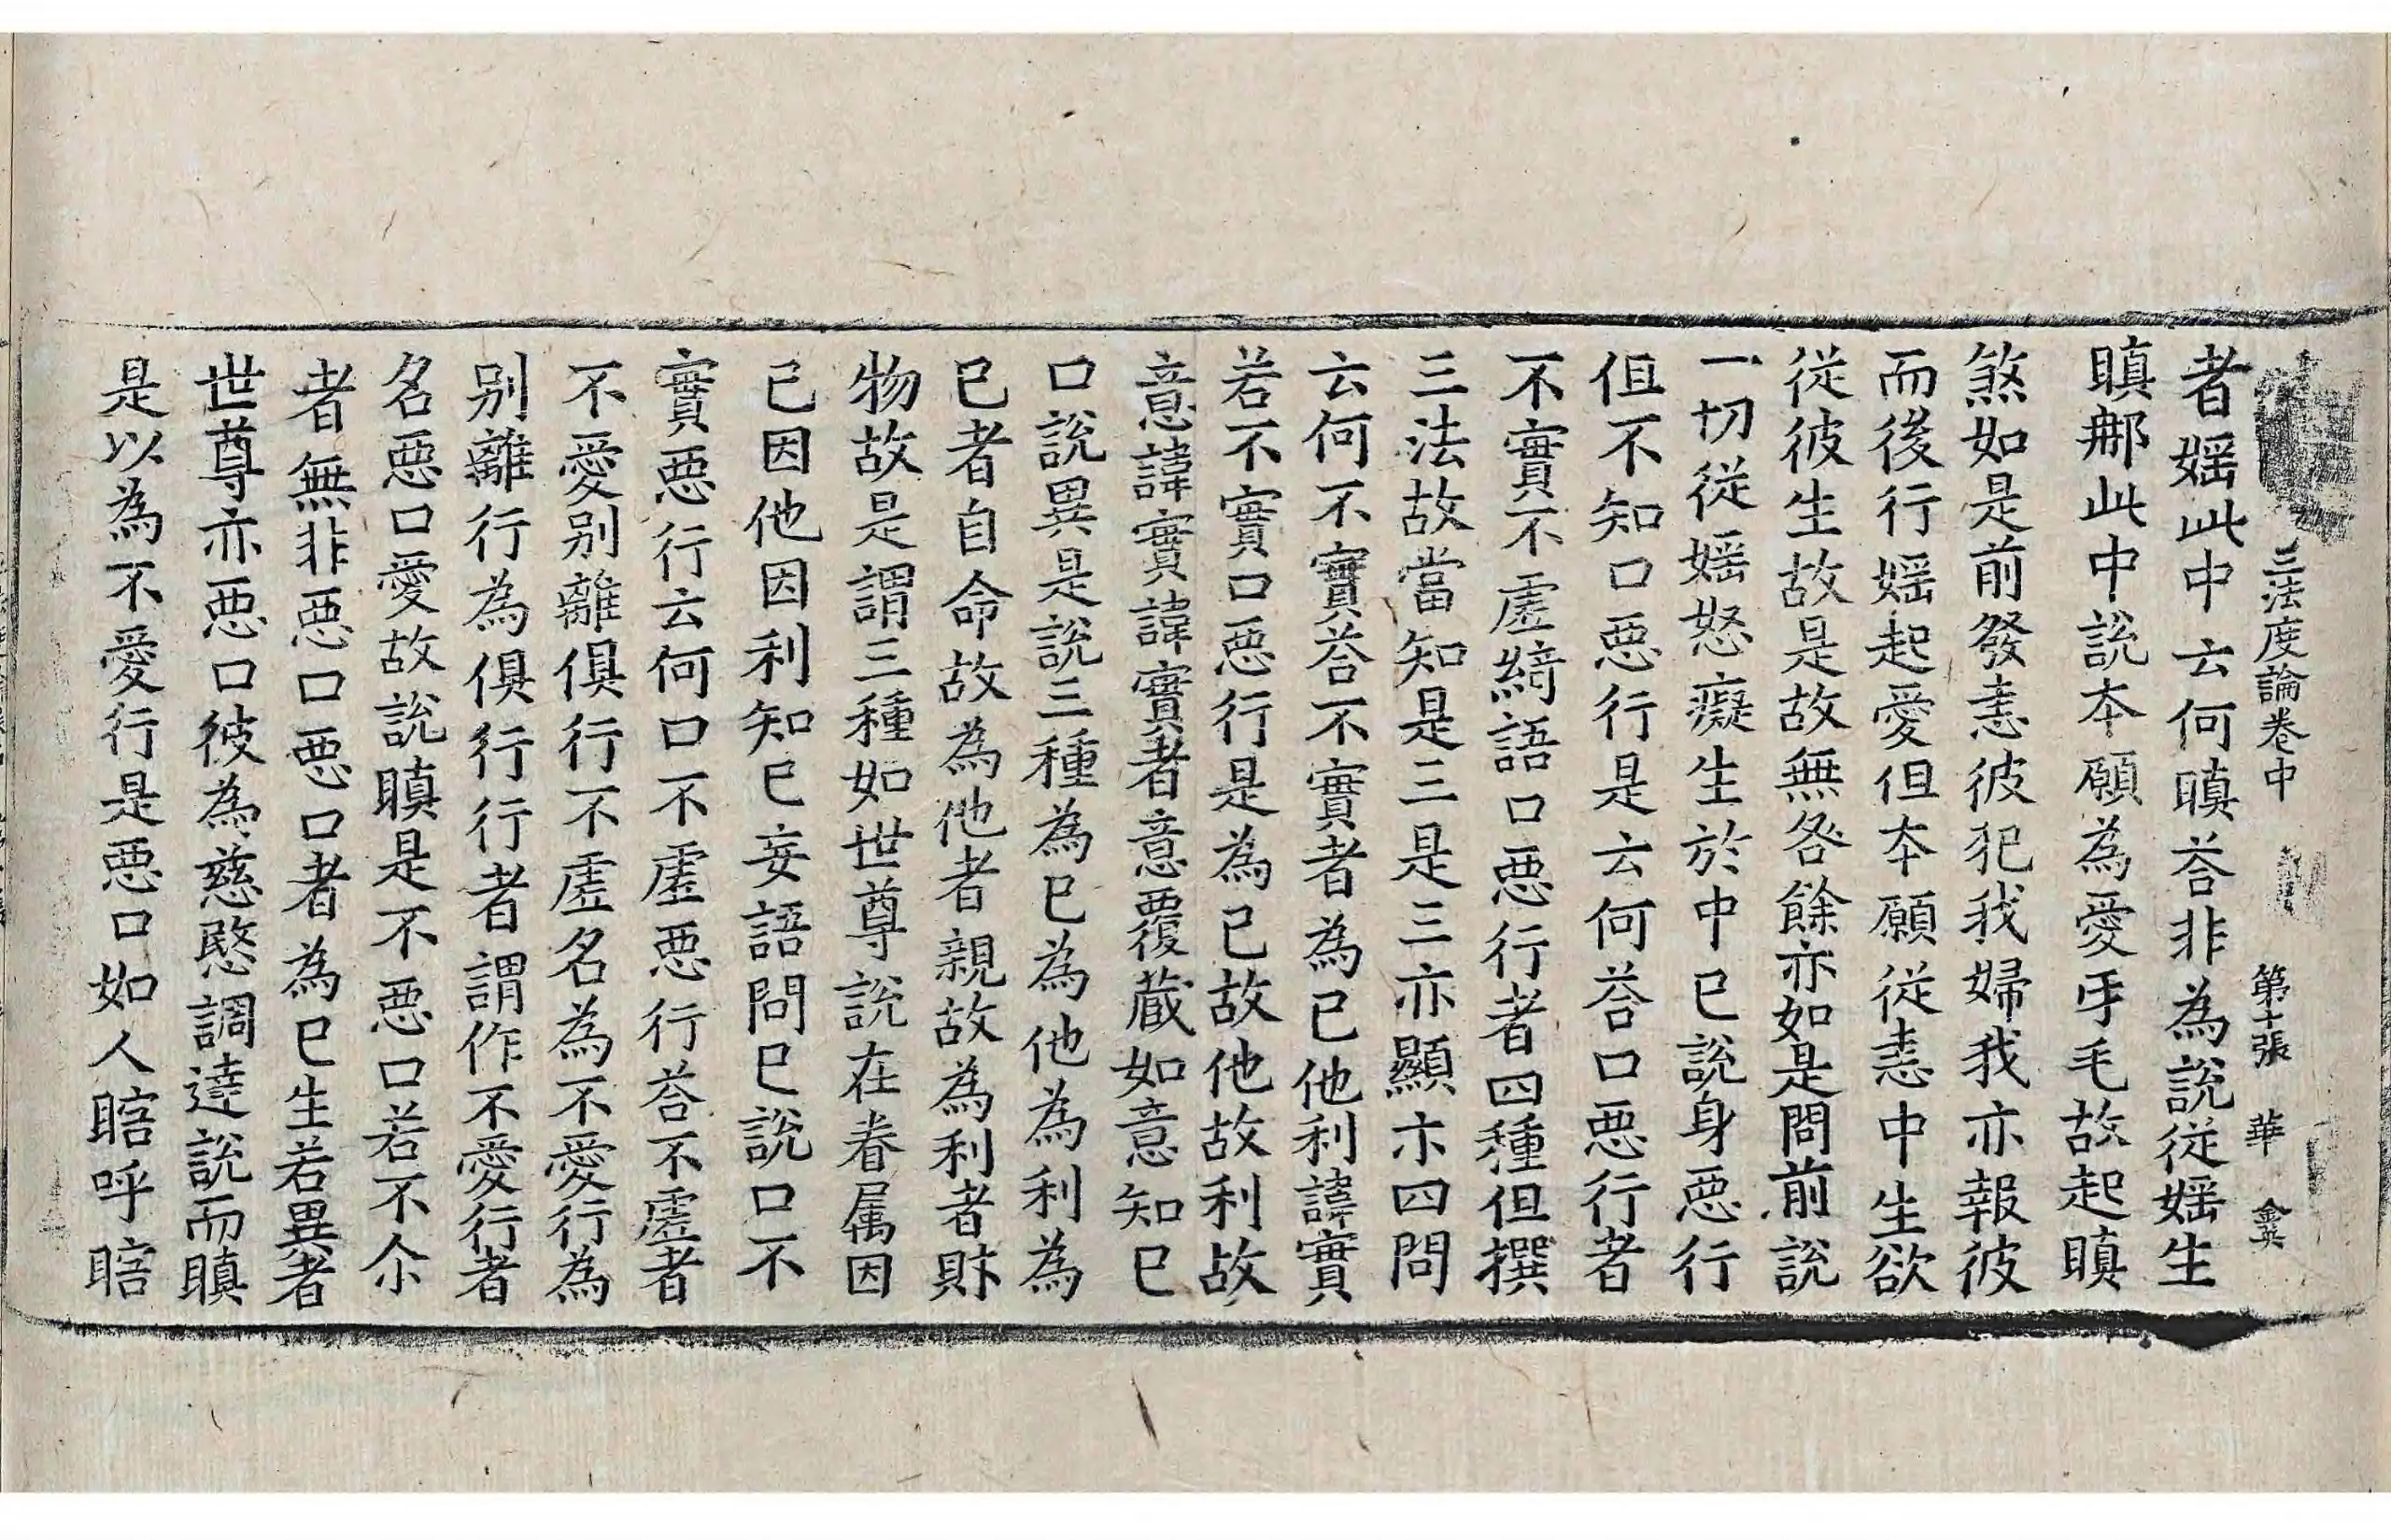 三法度論卷中 第十張 華
者婬此中云何瞋荅非為說從婬生
瞋耶此中說本願為愛㸦毛故起瞋
煞如是前發恚彼犯我婦我亦報彼
而後行婬起愛但本願從恚中生欲
從彼生故是故無咎餘亦如是問前說
一切從婬怒癡生於中已說身惡行
但不知口惡行是云何荅口惡行者
不實不虛綺語口惡行者四種但撰
三法故當知是三是三亦顯示四問
云何不實荅不實者為已他利諱實
若不實口惡行是為已故他故利故
意諱實諱實者意覆藏如意知已
口說異是說三種為已為他為利為
已者自命故為他者親故為利者財
物故是謂三種如世尊說在眷属因
已因他因利知已妄語問已說口不
實惡行云何口不虛惡行荅不虛者
不愛別離俱行不虛名為不愛行為
別離行為俱行行者謂作不愛行者
名惡口愛故說瞋是不惡口若不尒
者無非惡口惡口者為已生若異者
世尊亦惡口彼為慈愍調達說而瞋
是以為不愛行是惡口如人瞎呼瞎